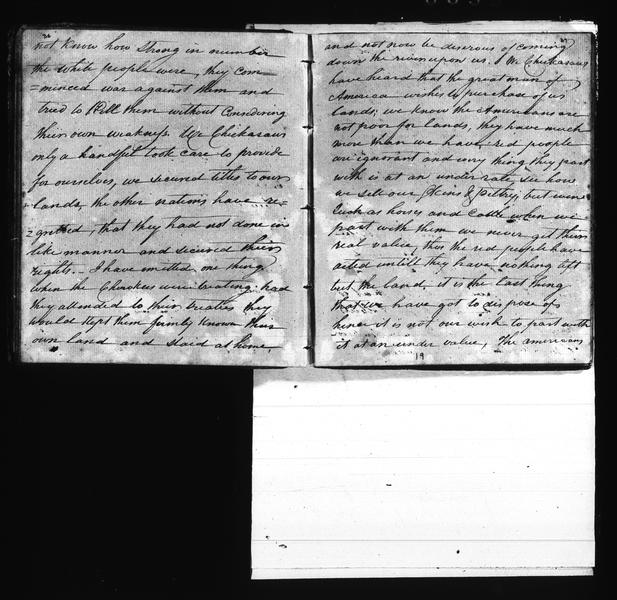 not know how Strong in number
the white people were, they com=
=minced war against them and
tried to Kill them without Considering
their own weakness We Chickasaws
only a handful took care to provide
for ourselves, we secured titles to our
lands, the other nations have re=
=gretted, that they had not done in
like manner and secured their
rights. I have omitted one thing
when the Cherokees were treating. had
they attended to their treaties they
would kept them firmly known their
own land and Staid at home,
and not now be desirous of coming
down the river upon us. We Chickasaws
have heard that the great men of
America wishes to purchase of us
lands, we know the Americans are
not poor for lands, they have much
more than we have, red people
are ignorant and every thing they part
with is at an under rate, see how
we sell our Skins & peltry, but
such as horses and Cattle when we
part with them we never get their
real value, thus the red people have
acted untill they have nothing left
but the land, it is the last thing
that we have got to dispose of
hence it is not our wish to part with
it at an under value, The americans
19